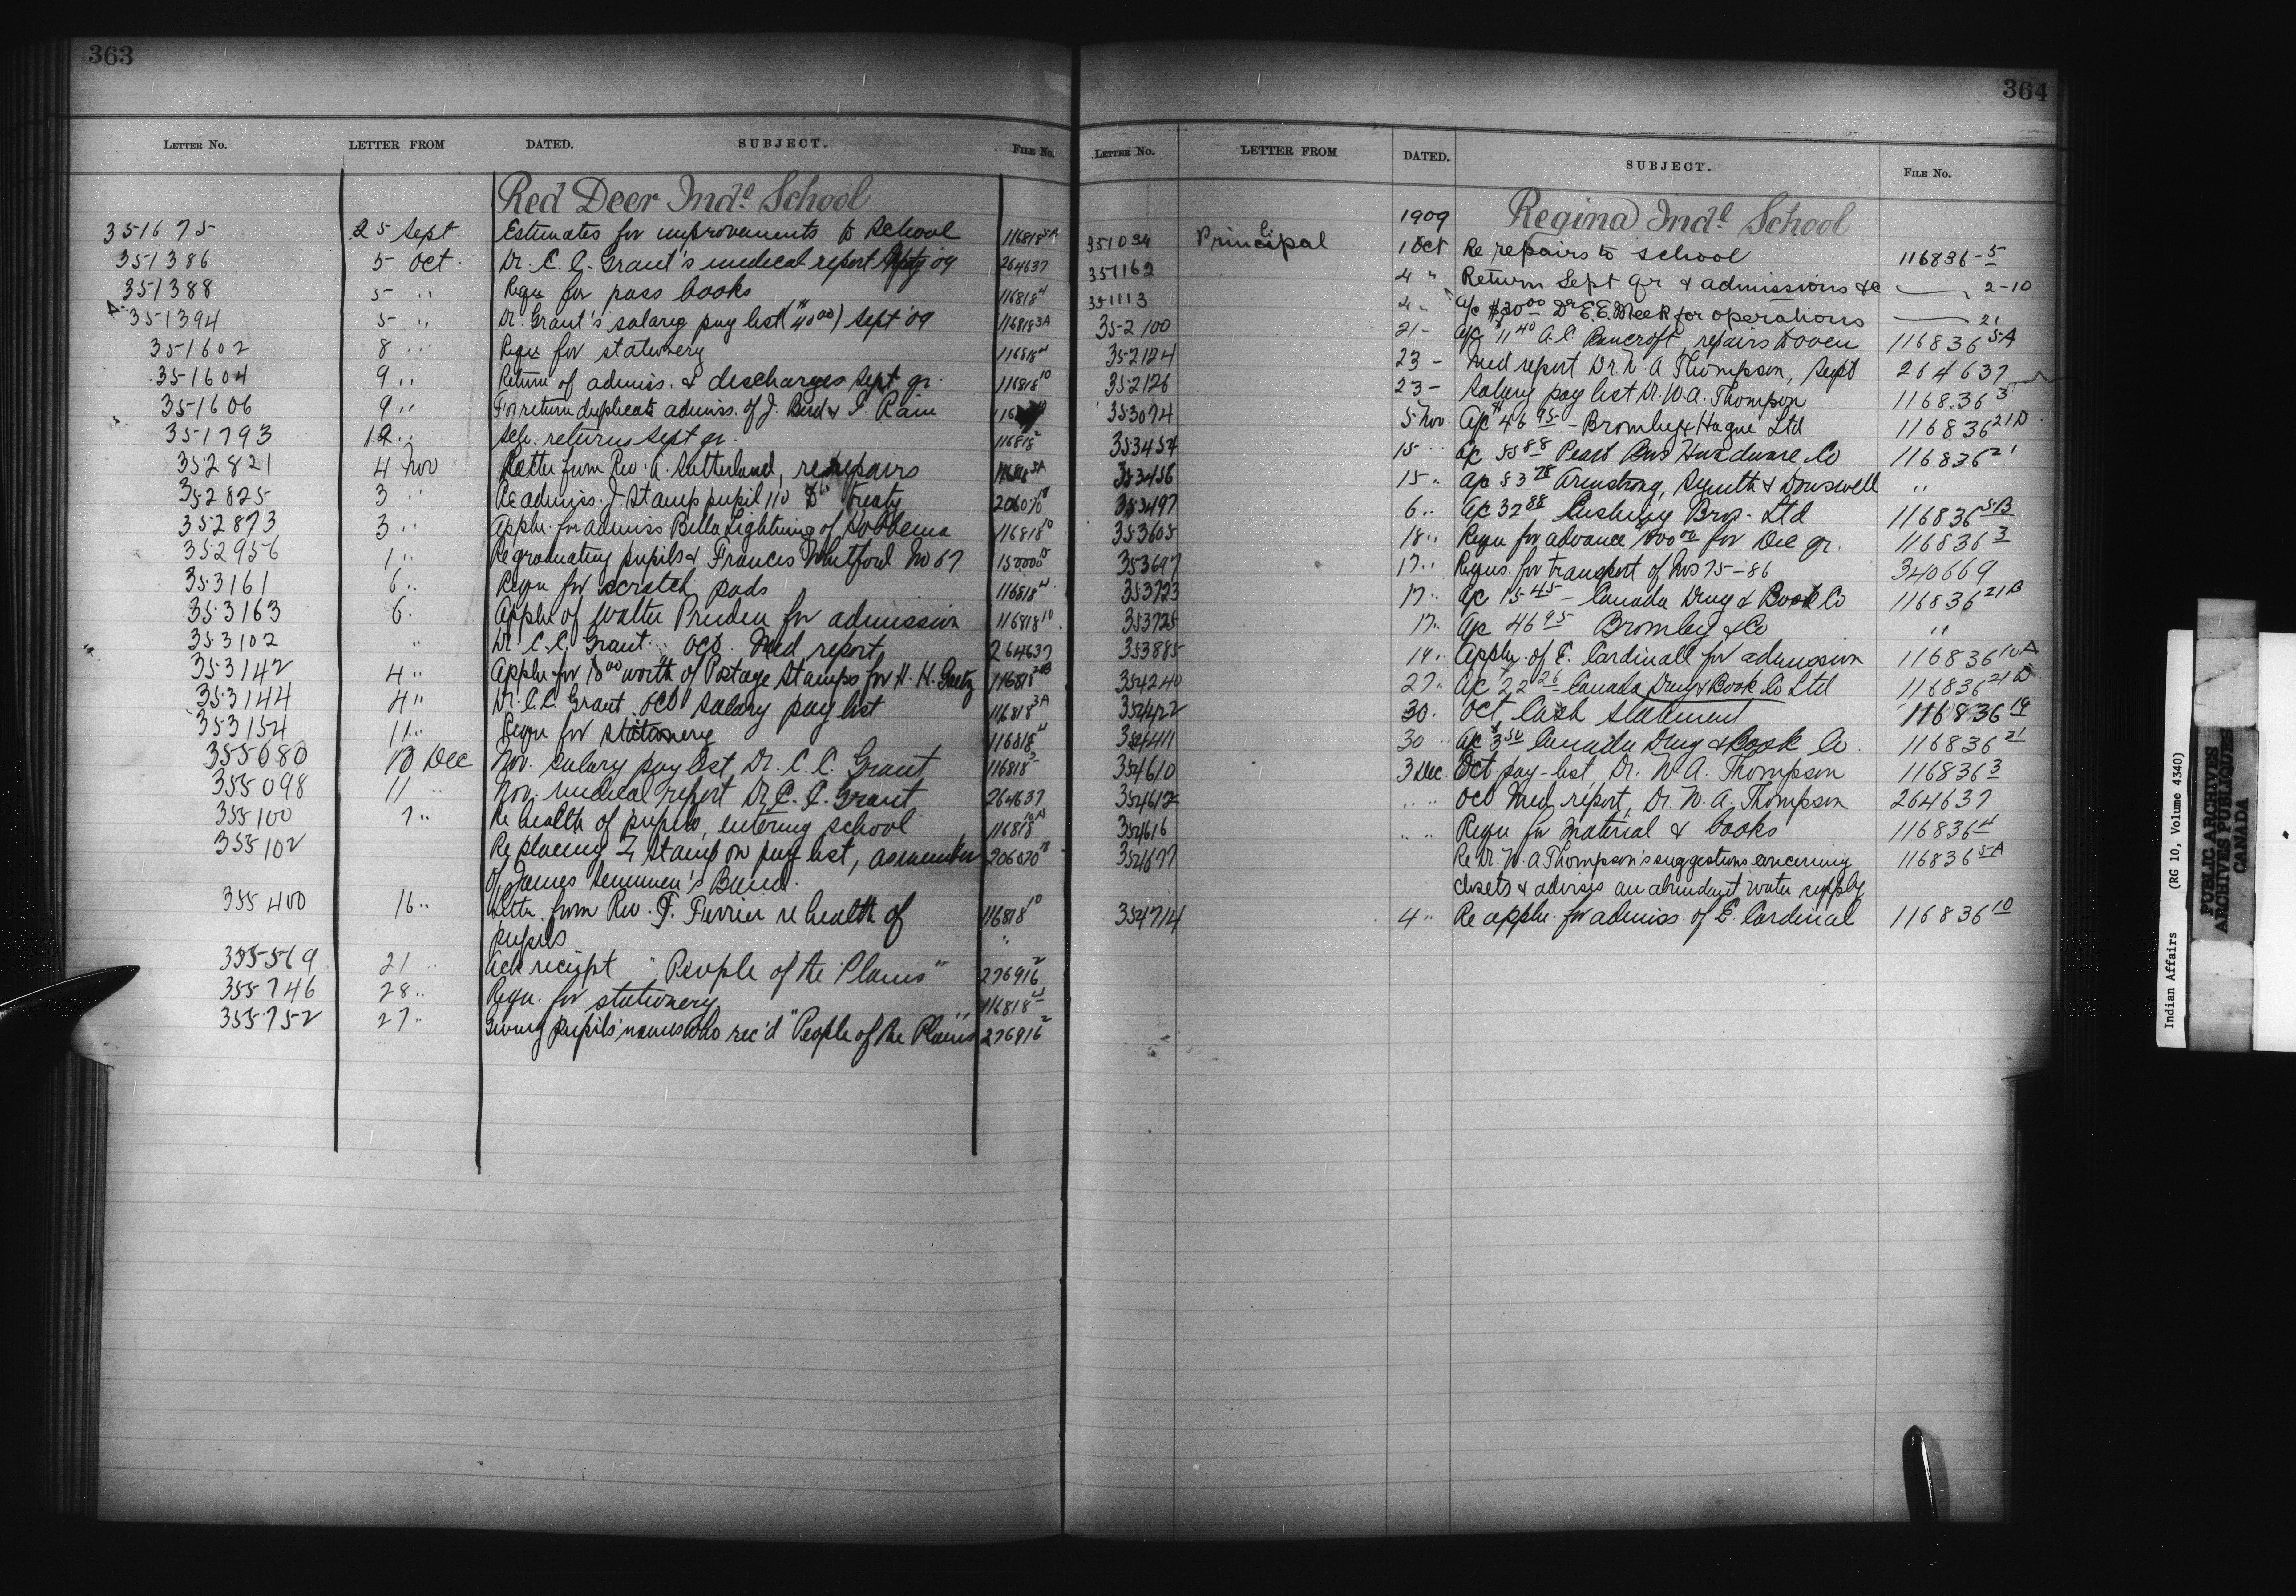 363
LETTER NO. LETTER FROM DATED. SUBJECT. FILE No.
Red Deer Indl School
351675 25 Sept. Estimates for improvements to School 116818 5A
351386 5 Oct. Dr. C. C. Grant's medical report Sept 09 264637
351388 5 " Requ for pass books 116818 4
351394 5 " Dr. Grant's salary pay list ($40 00) Sept '09 116818 3A
351602 8 " Requ for stationery 116818 4
351604 9 " Return of admiss. & discharges Sept qr. 116818 10
351606 9 " For return duplicate admiss. of J. Bird & I. Rain
351793 12 " Sch. returns Sept qr. 116818 2
352821 4 Nov Letter from Rev. A. Sutherland, re repairs 116818 5A
352825 3 " Re admiss. J. Stamp pupil 110 to Treaty 206070 18
352873 3 " Appln. for admiss Bella Lightning of Hobbema 116818 10
352956 1 " Re graduating pupils & Francis Whitford No 67 150000 15
353161 6 " Requ for scratch pads 116818 4
353163 6 " Appln of Walter Pruden for admission 116818 10
353102 " Dr. C. C. Grant Oct. Med report 264637
353142 4 " Appln for 18 00 worth of Postage Stamps for H. H. Gaetz 116818
353144 4 " Dr. C. C. Grant Oct Salary pay list 116818 3A
353154 11 " Requ for stationery 116818 4
355080 10 Dec Nov. salary pay list Dr. C. C. Grant 116818 3
355098 11 " Nov. medical report Dr C. C. Grant 264637
355100 7 " Re health of pupils, entering school 116818 10A
355102 Re placing J. Stamp on pay list, as member 206070 18
of James Seenum's Band.
355400 16 " Letter from Rev. T. Ferrier re health of 116818 10
pupils "
355569 21 " Ack receipt "People of the Plains" 276916 2
355746 28 " Requ. for stationery 116818 4
355752 27 " Giving pupils' names who rec'd "People of the Plains" 276916 2
364
LETTER NO. LETTER FROM DATED. SUBJECT. FILE No.
1909 Regina Indl School
351034 Principal 1 Oct Re repairs to school 116836-5
351162 4 " Return Sept qr & admissions &c — 2-10
351113 4 " a/c $30 00 Dr E. E. Meek for operations — 21
352100 21 - a/c $11 40 A. C. Bancroft, repairs to oven 116836 5A
352124 23 - Med report Dr. W. A Thompson, Sept 264637
352126 23 - Salary pay list Dr. W. A. Thompson 116836 3
353074 5 Nov a/c $46 95 - Bromley & Hague Ltd 116836 21D
353454 15 " a/c 55 88 Peart Bros Hardware Co 116836 21
353456 15 " a/c 53 78 Armstrong, Smyth & Dowswell "
353497 6 " a/c 32 88 Cushing Bros. Ltd 116836 5B
353605 18 " Requ for advance $800 00 for Dec qr. 116836 3
353697 17 " Requs. for transport of Nos 75-86 340669
353723 17 " a/c 15 45 - Canada Drug & Book Co 116836 21B
353725 17 " a/c 46 95 Bromley & Co "
353885 19 " Appln. of E. Cardinall for admission 116836 10A
354240 27 " a/c 22 26 Canada Drug & Book Co Ltd 116836 21D
354422 30 " Oct Cash Statement 116836 19
354411 30 " a/c $3 50 Canada Drug & Book Co. 116836 21
354610 3 Dec Oct pay-list, Dr. W. A. Thompson 116836 3
354612 " " Oct Med, report, Dr. W. A. Thompson 264637
354616 " " Requ for Material & books 116836 4
354677 Re Dr. W. A Thompson's suggestions concerning 116836 5A
closets & advises an abundant water supply
354714 4 " Re appln. for admiss. of E. Cardinal 116836 10
Indian Affairs (RG 10, Volume 4340)
PUBLIC ARCHIVES
ARCHIVES PUBLIQUES
CANADA